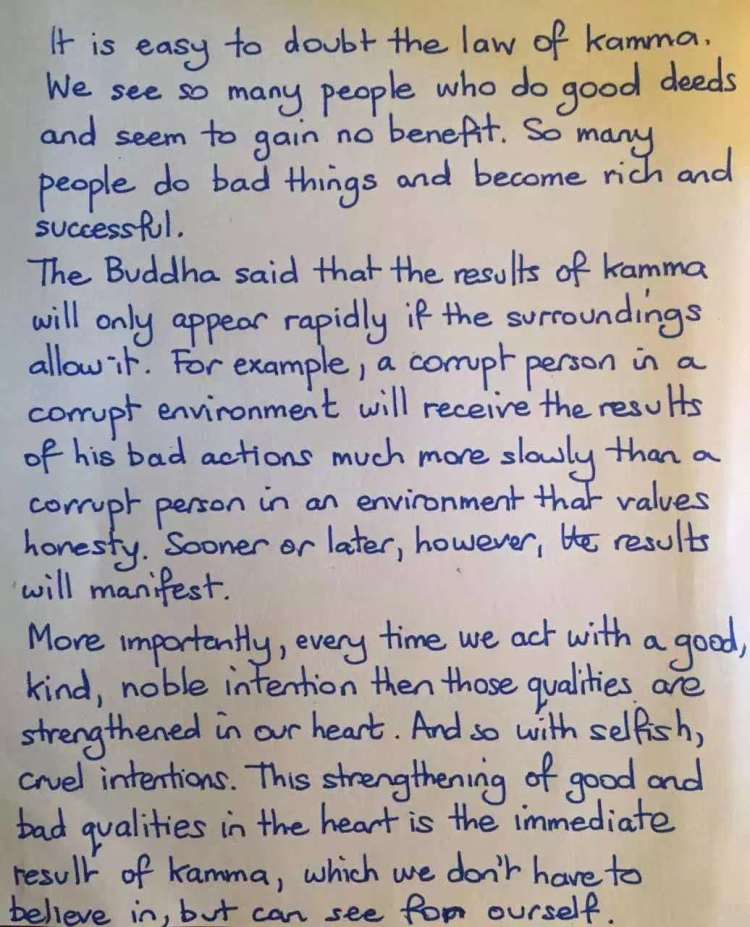 It is easy to doubt the law of kamma.
We see so many people who do good deeds
and seem to gain no benefit. So many
people do bad things and become rich and
successful.
The Buddha said that the results of kamma
will only appear rapidly if the surroundings
allow it. For example, a corrupt person in a
corrupt environment will receive the results
of his bad actions much more slowly than a
corrupt person in an environment that values
honesty. Sooner or later, however, the results
will manifest.
More importantly, every time we act with a good,
kind, noble intention then those qualities are
strengthened in our heart. And so with selfish,
cruel intentions. This strengthening of good and
bad qualities in the heart is the immediate
result of kamma, which we don't have to
believe in, but can see for ourself.